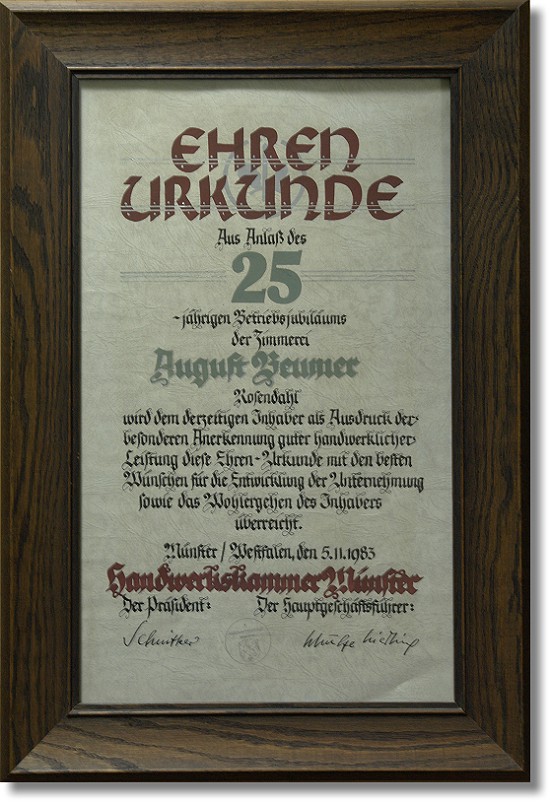 EHREN
URKUNDE
Aus Anlaß des
25
-jährigen Betriebsjubiläums
der Zimmerei
August Beumer
Rosendahl
wird dem derzeitigen Inhaber als Ausdruck der
besonderen Anerkennung guter handwerklicher
Leistung diese Ehren-Urkunde mit den besten
Wünschen für die Entwicklung der Unternehmung
sowie das Wohlergehen des Inhabers
überreicht.
Münster / Westfalen, den 5.11.1983
Handwerkskammer Münster
Der Präsident: Der Hauptgeschäftsführer: